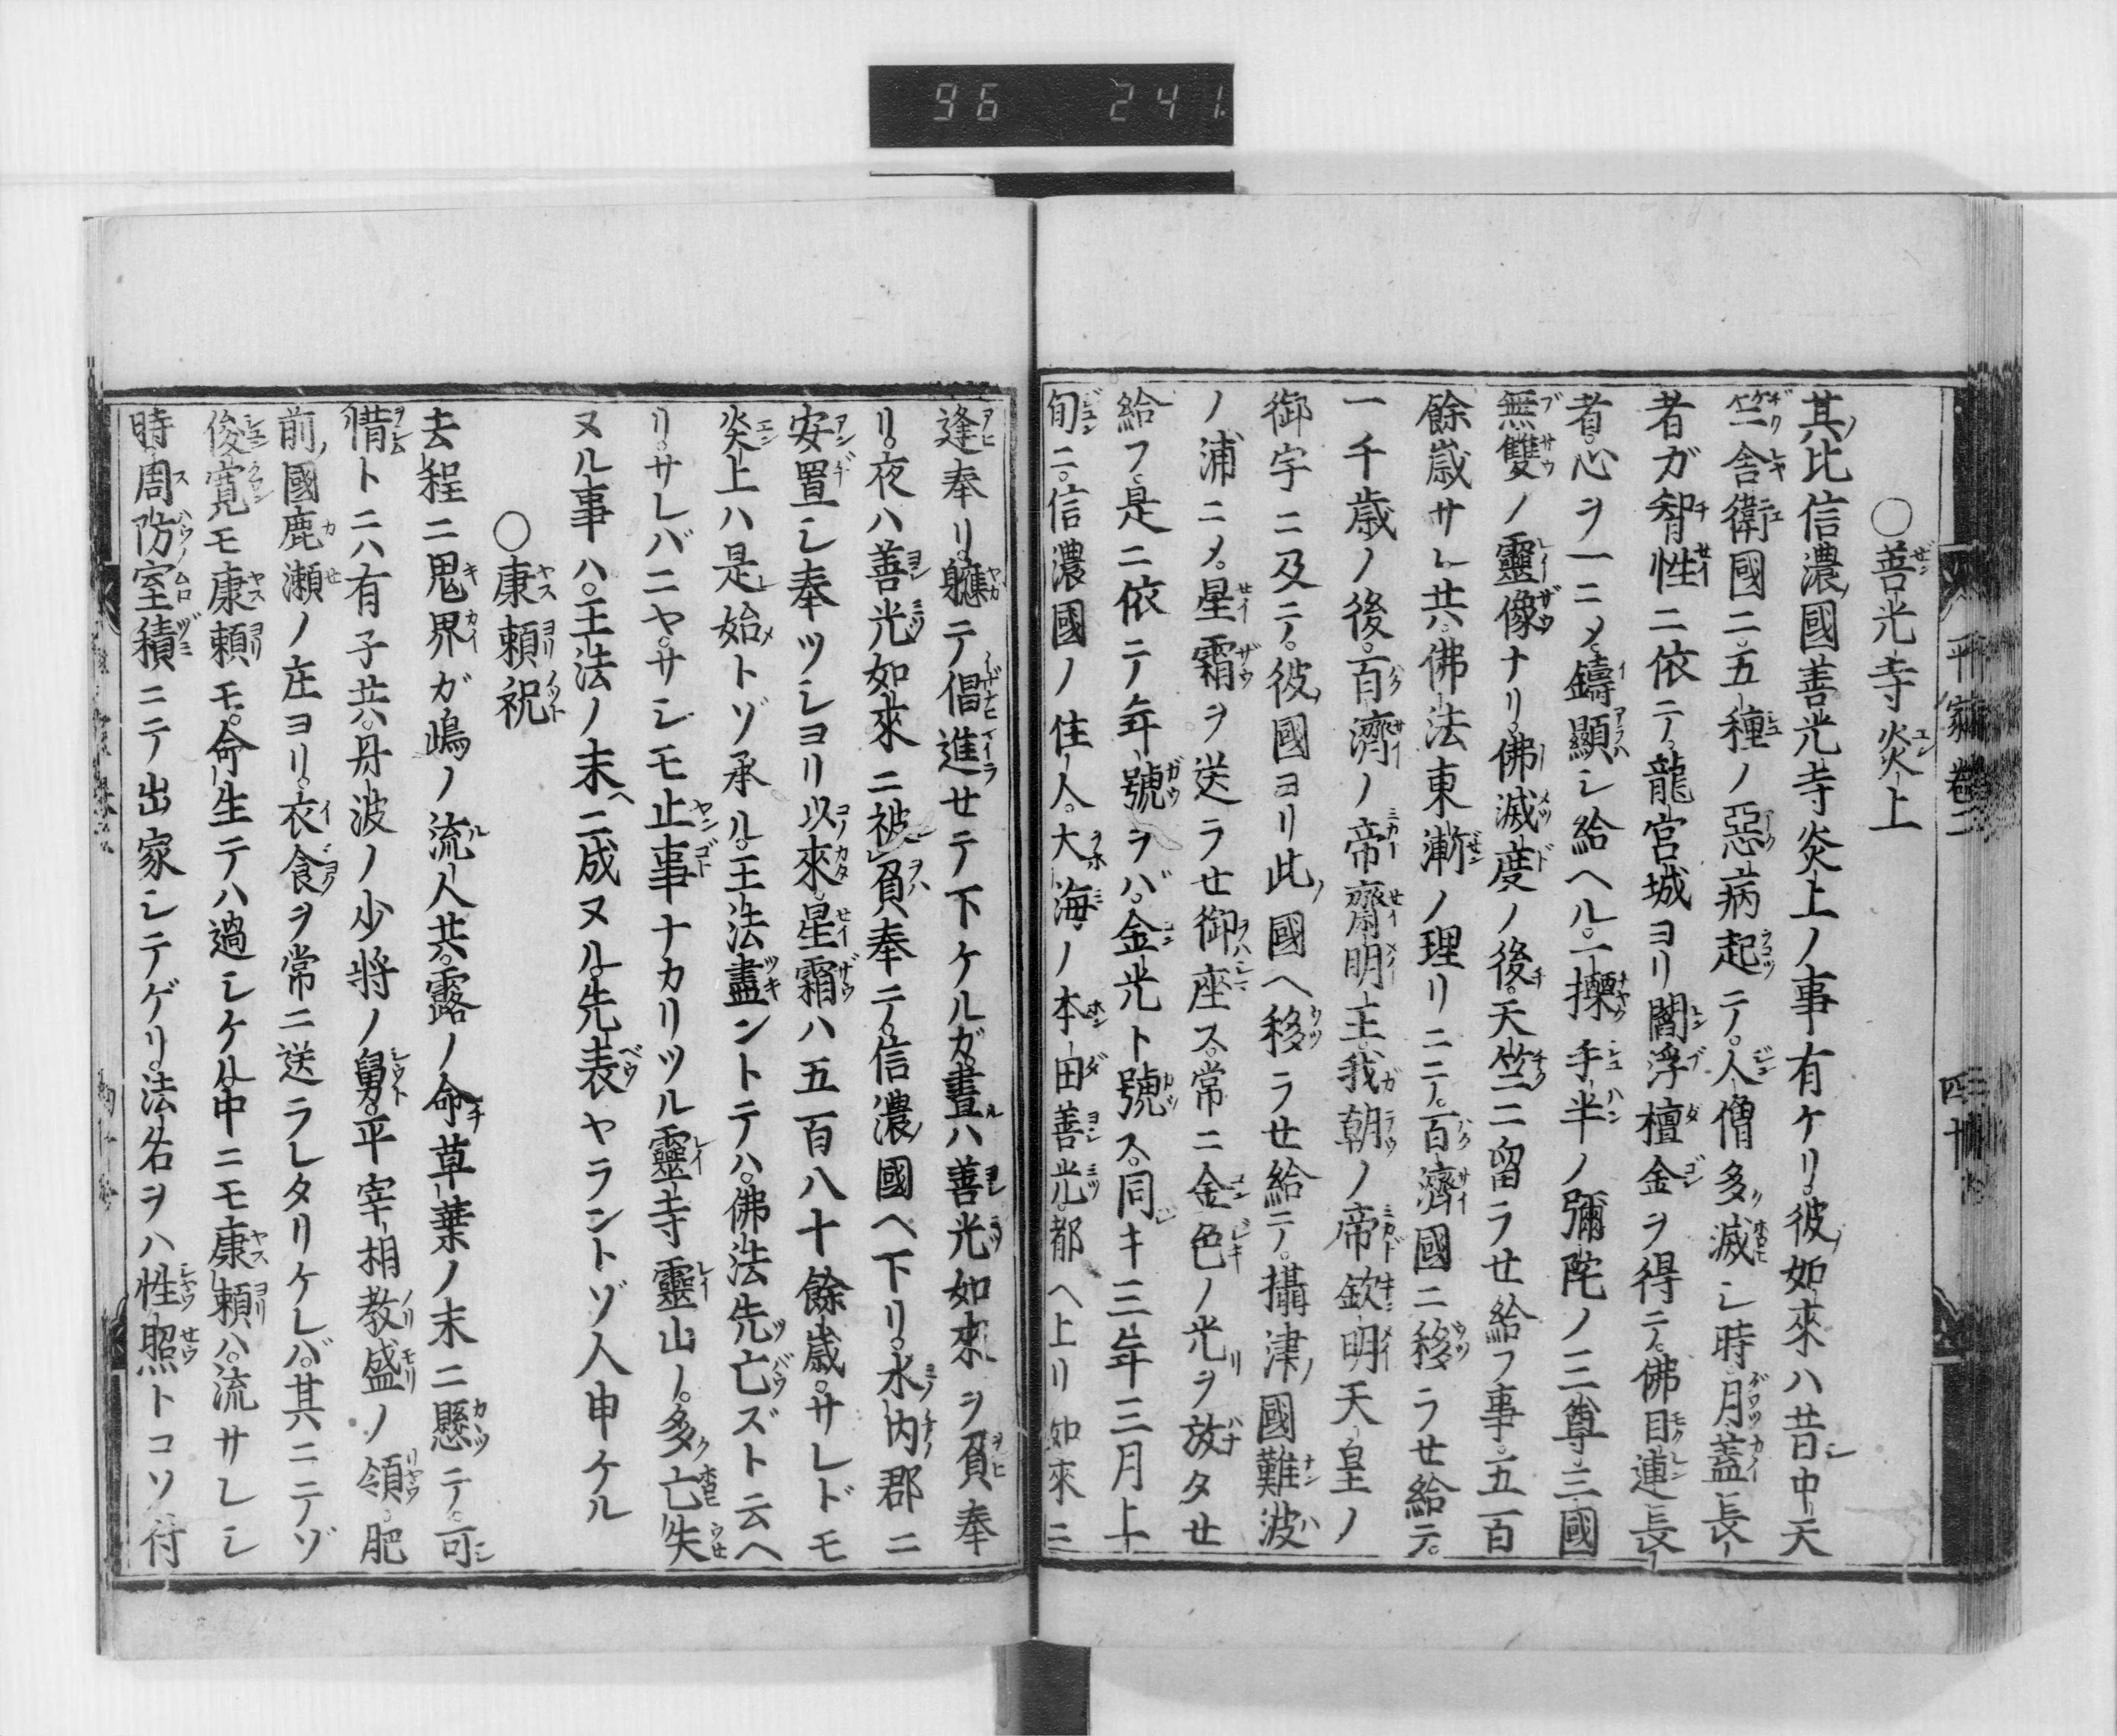 96 241
平家卷二
四十
○善光寺炎上
其比信濃國善光寺炎上ノ事有ケリ。彼如來ハ昔中天
竺舍衛國ニ。五種ノ惡病起ニテ。人僧多滅シ時。月蓋長
者ガ智性ニ依ニテ。龍宮城ヨリ閻浮檀金ヲ得ニテ。佛目連長
者。心ヲ一ニメ。鑄顯シ給ヘル。一擽手半ノ彌陀ノ三尊。三國
無雙ノ靈像ナリ。佛滅度ノ後。天竺ニ留ラせ給フ事。五百
餘歳サレ共。佛法東漸ノ理リニニテ。百濟國ニ移ラせ給テ。
一千歳ノ後。百濟ノ帝齋明王。我朝ノ帝欽明天皇ノ
御宇ニ及ニテ。彼國ヨリ此國ヘ移ラせ給ニテ。攝津國難波
ノ浦ニメ。星霜ヲ送ラせ御座ス。常ニ金色ノ光ヲ放タせ
給フ。是ニ依ニテ年號ヲバ。金光ト號ス。同キ三年三月上
旬ニ。信濃國ノ住人。大海ノ本田善光。都ヘ上リ如來ニ
逢奉リ。軈テ倡進せテ下ケルガ。晝ハ善光如來ヲ負奉
リ。夜ハ善光如來ニ被負奉ニテ。信濃國ヘ下リ。水内郡ニ
安置シ奉ツシヨリ以來。星霜ハ五百八十餘歳。サレドモ
炎上ハ是始トゾ承ル。王法盡ントテハ。佛法先亡ズト云ヘ
リ。サレバニヤ。サシモ止事ナカリツル靈寺靈山ノ。多亡失
ヌル事ハ。王法ノ末ニ成ヌル。先表ヤラントゾ人申ケル
○康賴祝
去程ニ鬼界ガ嶋ノ流人共。露ノ命草葉ノ末ニ懸ニテ。可
惜トニハ有子共。丹波ノ少將ノ舅。平宰相教盛ノ領。肥
前國鹿瀬ノ庄ヨリ。衣食ヲ常ニ送ラレタリケレバ。其ニニテゾ
俊寛モ康賴モ。命生テハ過シケル。中ニモ康賴ハ。流サレシ
時。周防室積ニテ出家シテゲリ。法名ヲハ性照トコソ付